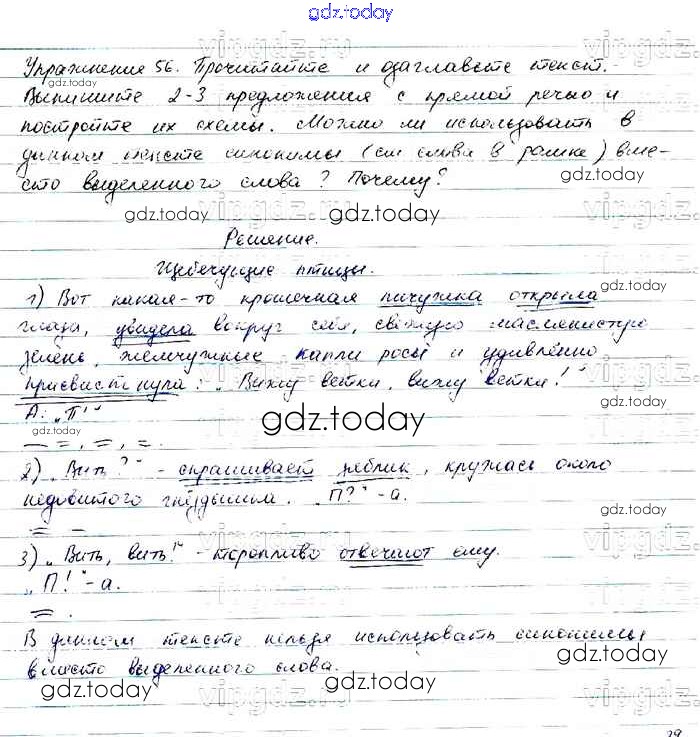 gdz.today
Упражнение 56. Прочитайте и озаглавьте текст.
Выпишите 2-3 предложения с прямой речью и
постройте их схемы. Можно ли использовать в
данном тексте синонимы (см слова в рамке) вме-
сто выделенного слова? Почему?
Решение.
Щебечущие птицы.
1) Вот какая-то крошечная пичужка открыла
глаза, увидела вокруг себя, светлую маслянистую
зелень, жемчужные капли росы и удивлённо
присвистнула: „Вижу ветки, вижу ветки!"
А: „П!"
2) „Вить?" - спрашивает зяблик, кружась около
недовитого гнёздышка. „П?" - а.
3) „Вить, вить!" - торопливо отвечают ему.
„П!" - а.
В данном тексте нельзя использовать синонимы
вместо выделенного слова.
gdz.today
vipgdz.ru